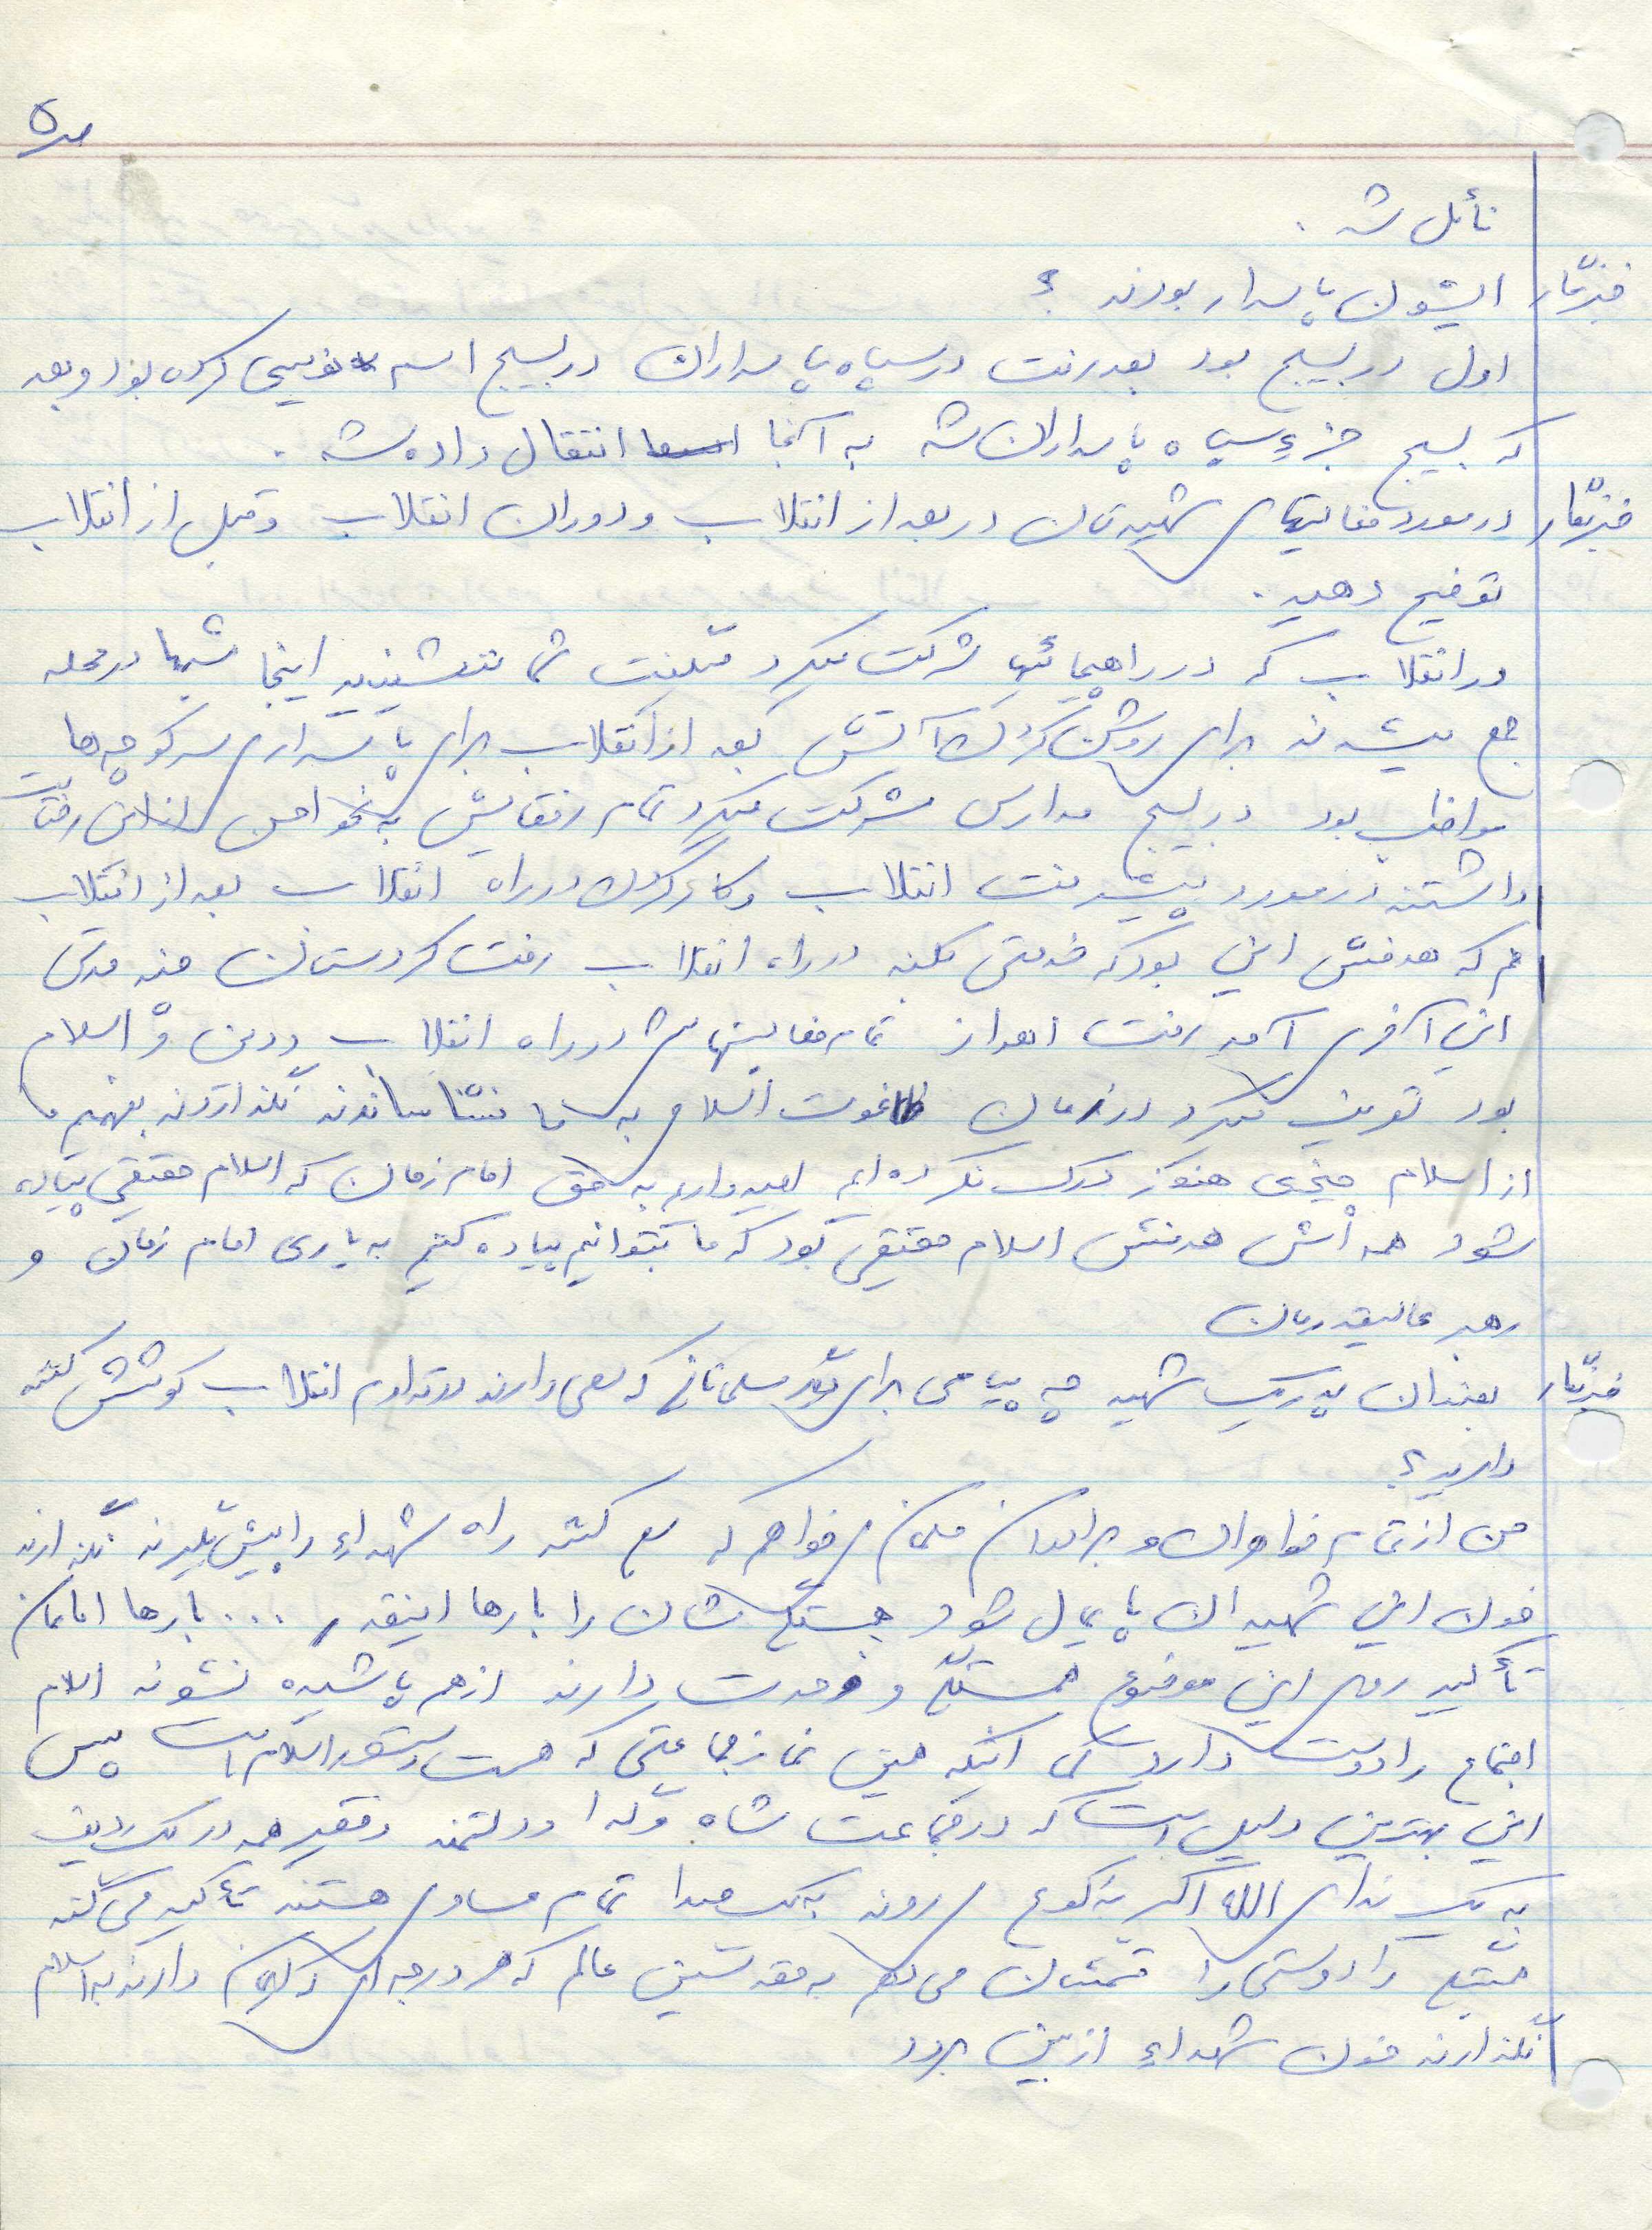 ص۵
نائل شد .
خبرنگار ایشون پاسدار بودند ؟
اول در بسیج بود بعد رفت در سپاه پاسداران در بسیج اسم نویسی کرده بود و بعد
که بسیج جزء سپاه پاسداران شد به آنجا انتقال داده شد .
خبرنگار در مورد فعالیتهای شهیدتان در بعد از انقلاب و دوران انقلاب و قبل از انقلاب
توضیح دهید .
در انقلاب که در راهپیمائیها شرکت میکرد میگفت شما ننشینید اینجا شبها در محله
جمع میشدند برای روشن کردن آتش بعد از انقلاب برای پاسداری سر کوچه‌ها
مواظب بود در بسیج مدارس شرکت میکرد تمام رفقایش به نحو احسن از این رضایت
داشتند در مورد پیشرفت انقلاب و کار کردن در راه انقلاب بعد از انقلاب
هم که هدفش این بود که خدمتی بکند در راه انقلاب رفت کردستان چند مدتی
این آخری آمد رفت اهواز تمام فعالیتهایش در راه انقلاب و دین و اسلام
بود تعریف میکرد در زمان طاغوت اسلام به ما نشناساندند نگذاردند بفهمیم ما
از اسلام چیزی هنوز درک نکرده‌ایم امیدواریم به حق امام زمان که اسلام حقیقی پیاده
شود همه‌اش هدفش اسلام حقیقی بود که ما بتوانیم پیاده کنیم به یاری امام زمان و
رهبر عالیقدرمان
خبرنگار بعنوان پدر یک شهید چه پیامی برای مسلمانانی که سعی دارند در تداوم انقلاب کوشش کنند
دارید؟
من از تمام خواهران و برادران مسلمان میخواهم که سعی کنند راه شهداء را پیش بگیرند نگذارند
خون این شهیدان پایمال شود همبستگی‌شان را بارها اینقدر ... بارها اماممان
تأکید روی این موضوع همبستگی و وحدت دارند از هم پاشیده نشوند اسلام
اجتماع را دوست دارد برای اینکه همین نماز جماعتی که هست دستور اسلام است پس
این بهترین دلیل است که در جماعت شاه و گدا و دولتمند و فقیر همه در یک ردیف
به یک ندای الله اکبر به رکوع میروند به یک صدا تمام مساوی هستند تأکید می‌کنند
را دوستی را قسمتان می‌دهم به مقدسین عالم که هر درجه‌ای از ایمان دارند به اسلام
نگذارند خون شهداء از بین برود